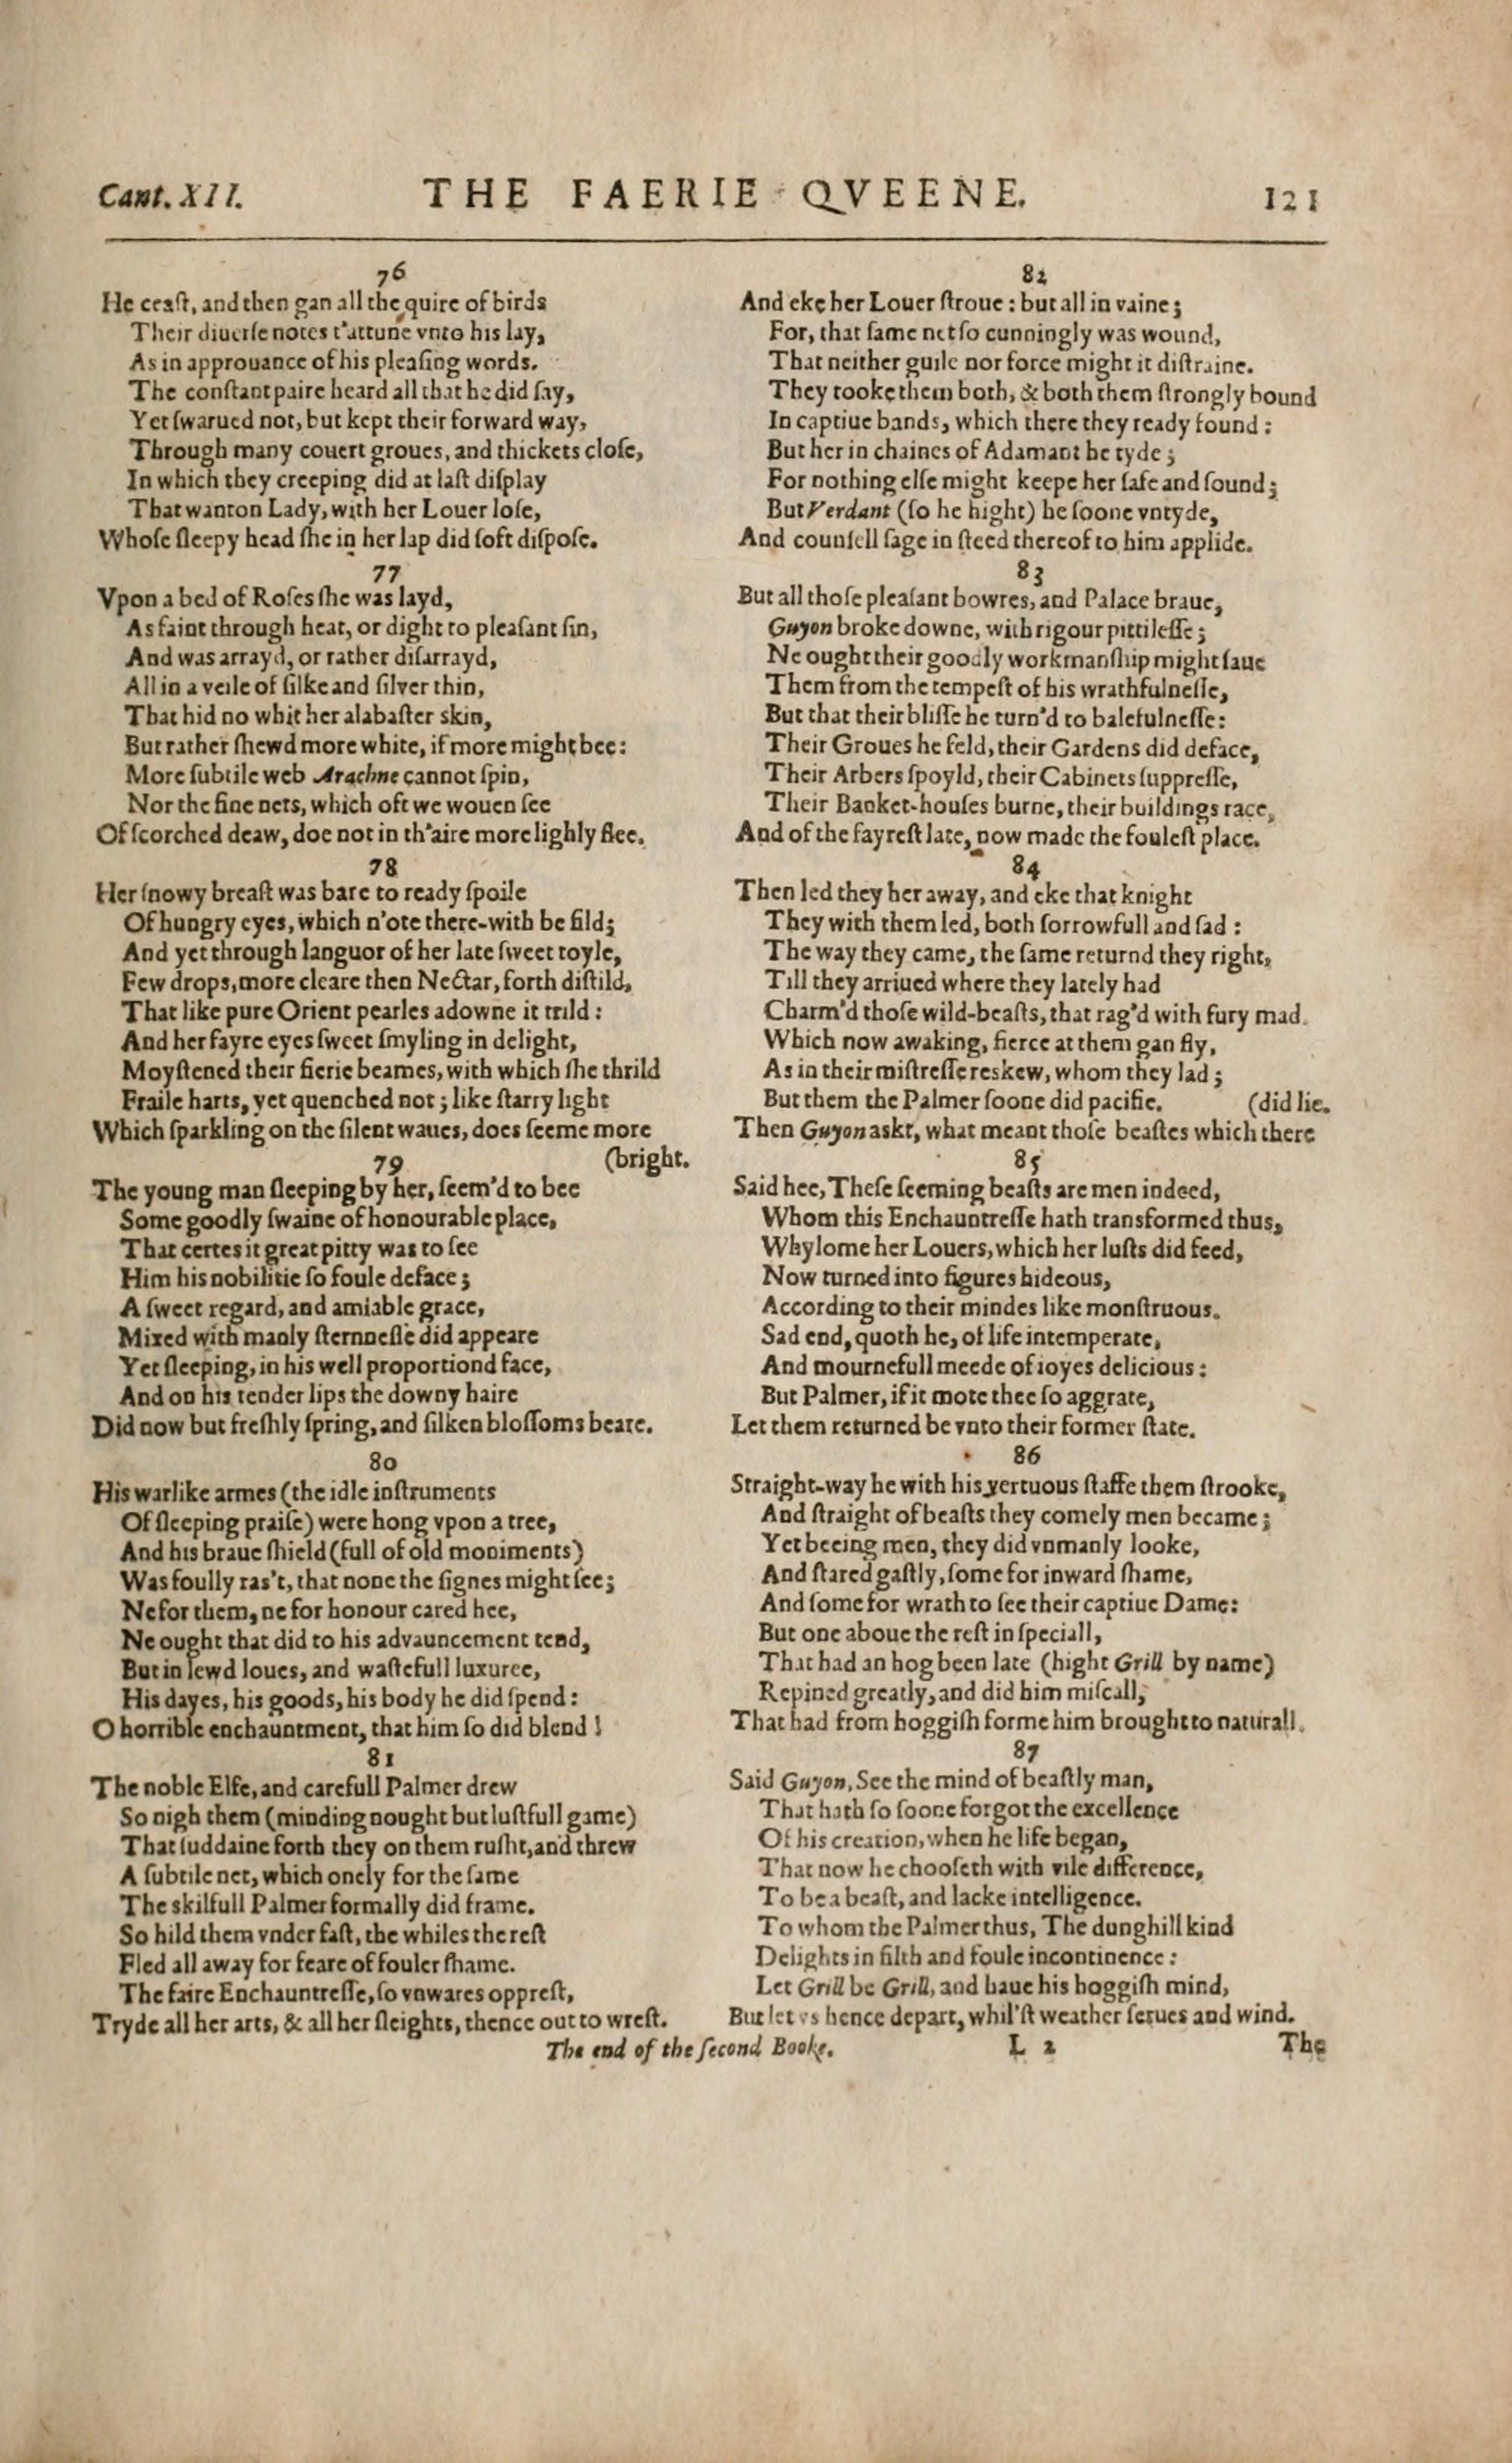 Cant. XII. THE FAERIE QVEENE. 121
76
He ceaſt, and then gan all the quire of birds
Their diuerſe notes t'attune vnto his lay,
As in approuance of his pleaſing words.
The conſtant paire heard all that he did ſay,
Yet ſwarued not, but kept their forward way,
Through many couert groues, and thickets cloſe,
In which they creeping did at laſt diſplay
That wanton Lady, with her Louer loſe,
Whoſe ſleepy head ſhe in her lap did ſoft diſpoſe.
77
Vpon a bed of Roſes ſhe was layd,
As faint through heat, or dight to pleaſant ſin,
And was arrayd, or rather diſarrayd,
All in a veile of ſilke and ſilver thin,
That hid no whit her alabaſter skin,
But rather ſhewd more white, if more might bee:
More ſubtile web Arachne cannot ſpin,
Nor the fine nets, which oft we wouen ſee
Of ſcorched deaw, doe not in th'aire more lighly flee.
78
Her ſnowy breaſt was bare to ready ſpoile
Of hungry eyes, which n'ote there-with be fild;
And yet through languor of her late ſweet toyle,
Few drops, more cleare then Nectar, forth diſtild,
That like pure Orient pearles adowne it trild:
And her fayre eyes ſweet ſmyling in delight,
Moyſtened their fierie beames, with which ſhe thrild
Fraile harts, yet quenched not; like ſtarry light
Which ſparkling on the ſilent waues, does ſeeme more
(bright.
79
The young man ſleeping by her, ſeem'd to bee
Some goodly ſwaine of honourable place,
That certes it great pitty was to ſee
Him his nobilitie ſo foule deface;
A ſweet regard, and amiable grace,
Mixed with manly ſternneſſe did appeare
Yet ſleeping, in his well proportiond face,
And on his tender lips the downy haire
Did now but freſhly ſpring, and ſilken bloſſoms beare.
80
His warlike armes (the idle inſtruments
Of ſleeping praiſe) were hong vpon a tree,
And his braue ſhield (full of old moniments)
Was foully ras't, that none the ſignes might ſee;
Ne for them, ne for honour cared hee,
Ne ought that did to his advauncement tend,
But in lewd loues, and waſtefull luxuree,
His dayes, his goods, his body he did ſpend:
O horrible enchauntment, that him ſo did blend!
81
The noble Elfe, and carefull Palmer drew
So nigh them (minding nought but luſtfull game)
That ſuddaine forth they on them ruſht, and threw
A ſubtile net, which onely for the ſame
The skilfull Palmer formally did frame.
So hild them vnder faſt, the whiles the reſt
Fled all away for feare of fouler ſhame.
The faire Enchauntreſſe, ſo vnwares oppreſt,
Tryde all her arts, & all her ſleights, thence out to wreſt.
82
And eke her Louer ſtroue: but all in vaine;
For, that ſame net ſo cunningly was wound,
That neither guile nor force might it diſtraine.
They tooke them both, & both them ſtrongly bound
In captiue bands, which there they ready found:
But her in chaines of Adamant he tyde;
For nothing elſe might keepe her ſafe and ſound;
But Verdant (ſo he hight) he ſoone vntyde,
And counſell ſage in ſteed thereof to him applide.
83
But all thoſe pleaſant bowres, and Palace braue,
Guyon broke downe, with rigour pittileſſe;
Ne ought their goodly workmanſhip might ſaue
Them from the tempeſt of his wrathfulneſſe,
But that their bliſſe he turn'd to balefulneſſe:
Their Groues he feld, their Gardens did deface,
Their Arbers ſpoyld, their Cabinets ſuppreſſe,
Their Banket-houſes burne, their buildings race,
And of the fayreſt late, now made the fouleſt place.
84
Then led they her away, and eke that knight
They with them led, both ſorrowfull and ſad:
The way they came, the ſame returnd they right,
Till they arriued where they lately had
Charm'd thoſe wild-beaſts, that rag'd with fury mad.
Which now awaking, fierce at them gan fly,
As in their miſtreſſe reskew, whom they lad;
But them the Palmer ſoone did pacifie. (did lie.
Then Guyon askt, what meant thoſe beaſtes which there
85
Said hee, Theſe ſeeming beaſts are men indeed,
Whom this Enchauntreſſe hath transformed thus,
Whylome her Louers, which her luſts did feed,
Now turned into figures hideous,
According to their mindes like monſtruous.
Sad end, quoth he, of life intemperate,
And mournefull meede of ioyes delicious:
But Palmer, if it mote thee ſo aggrate,
Let them returned be vnto their former ſtate.
86
Straight-way he with his vertuous ſtaffe them ſtrooke,
And ſtraight of beaſts they comely men became;
Yet beeing men, they did vnmanly looke,
And ſtared gaſtly, ſome for inward ſhame,
And ſome for wrath to ſee their captiue Dame:
But one aboue the reſt in ſpeciall,
That had an hog been late (hight Grill by name)
Repined greatly, and did him miſcall,
That had from hoggiſh forme him brought to naturall.
87
Said Guyon, See the mind of beaſtly man,
That hath ſo ſoone forgot the excellence
Of his creation, when he life began,
That now he chooſeth with vile difference,
To be a beaſt, and lacke intelligence.
To whom the Palmer thus, The dunghill kind
Delights in filth and foule incontinence:
Let Grill be Grill, and haue his hoggiſh mind,
But let vs hence depart, whil'ſt weather ſerues and wind.
The end of the ſecond Booke. L 2 The